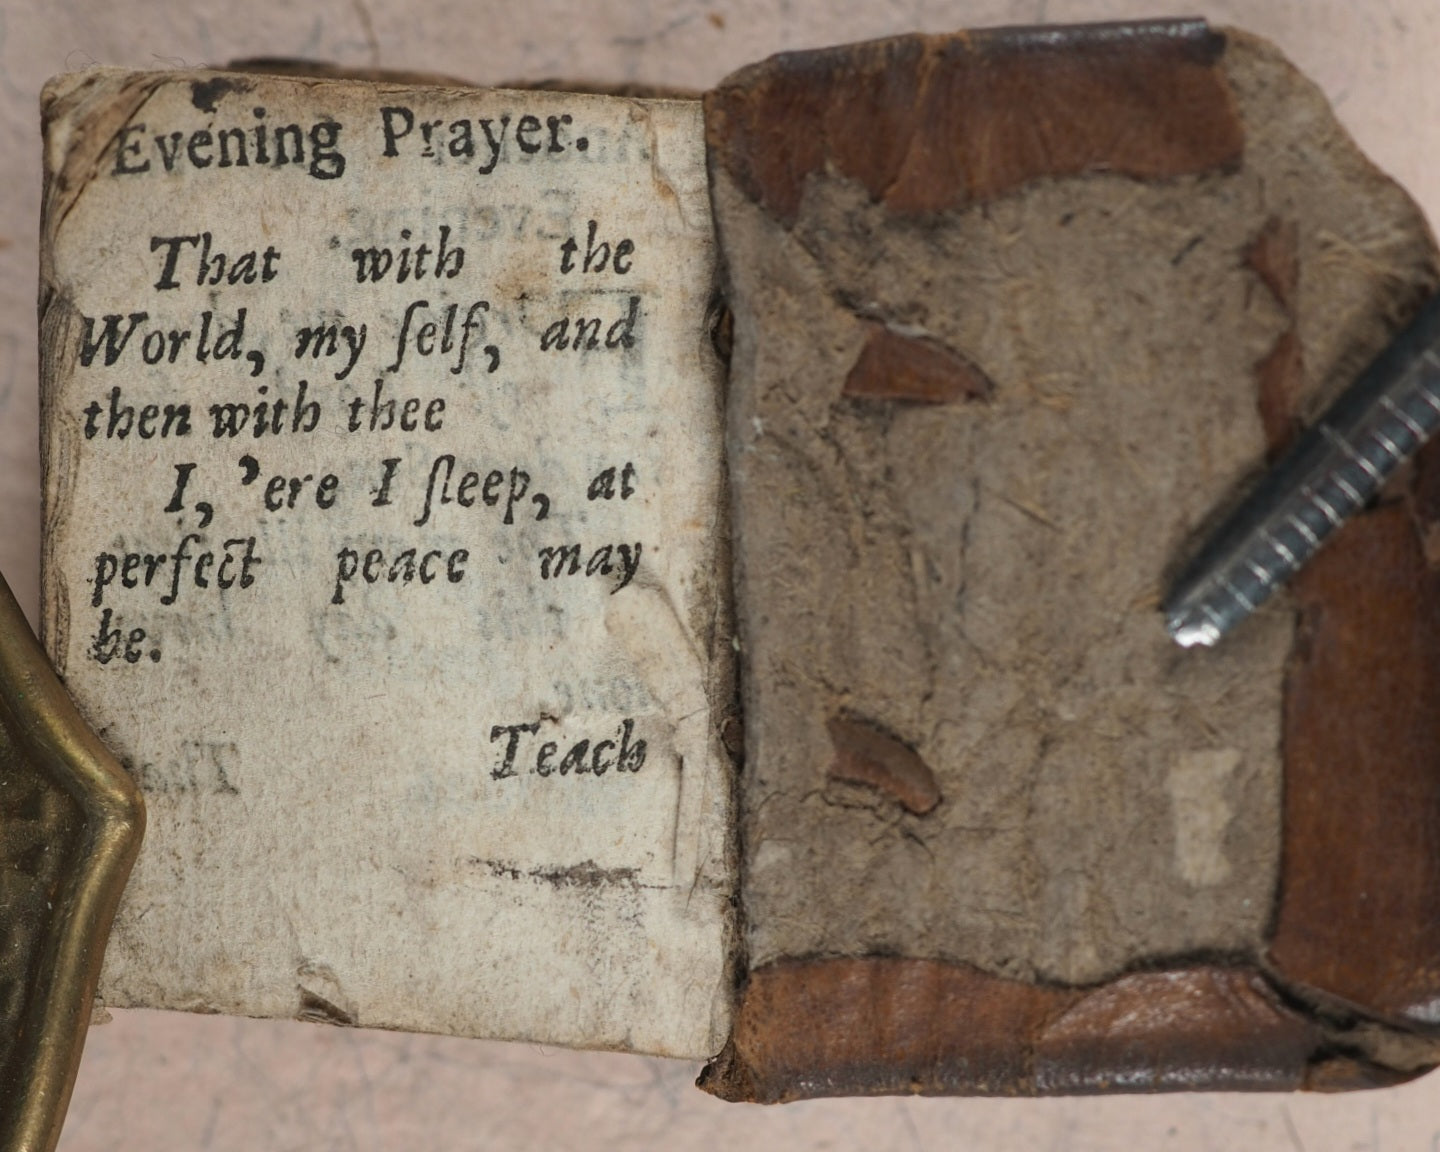 Evening Prayer.
That with the
World, my ſelf, and
then with thee
I, 'ere I ſleep, at
perfect peace may
be.
Teach